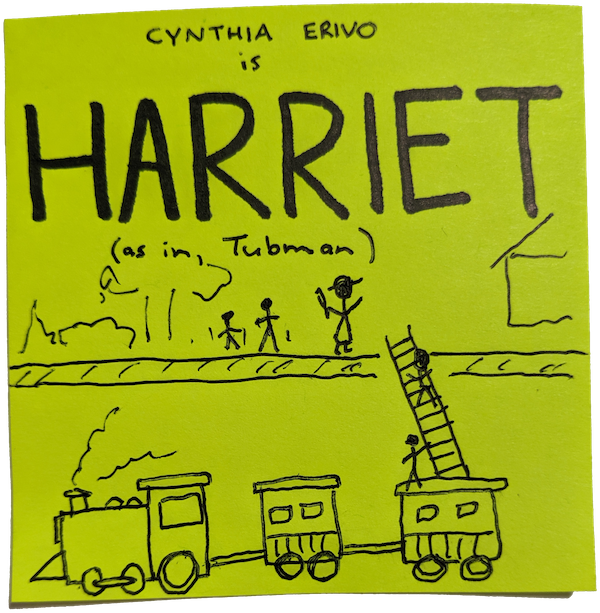 CYNTHIA ERIVO
is
HARRIET
(as in, Tubman)